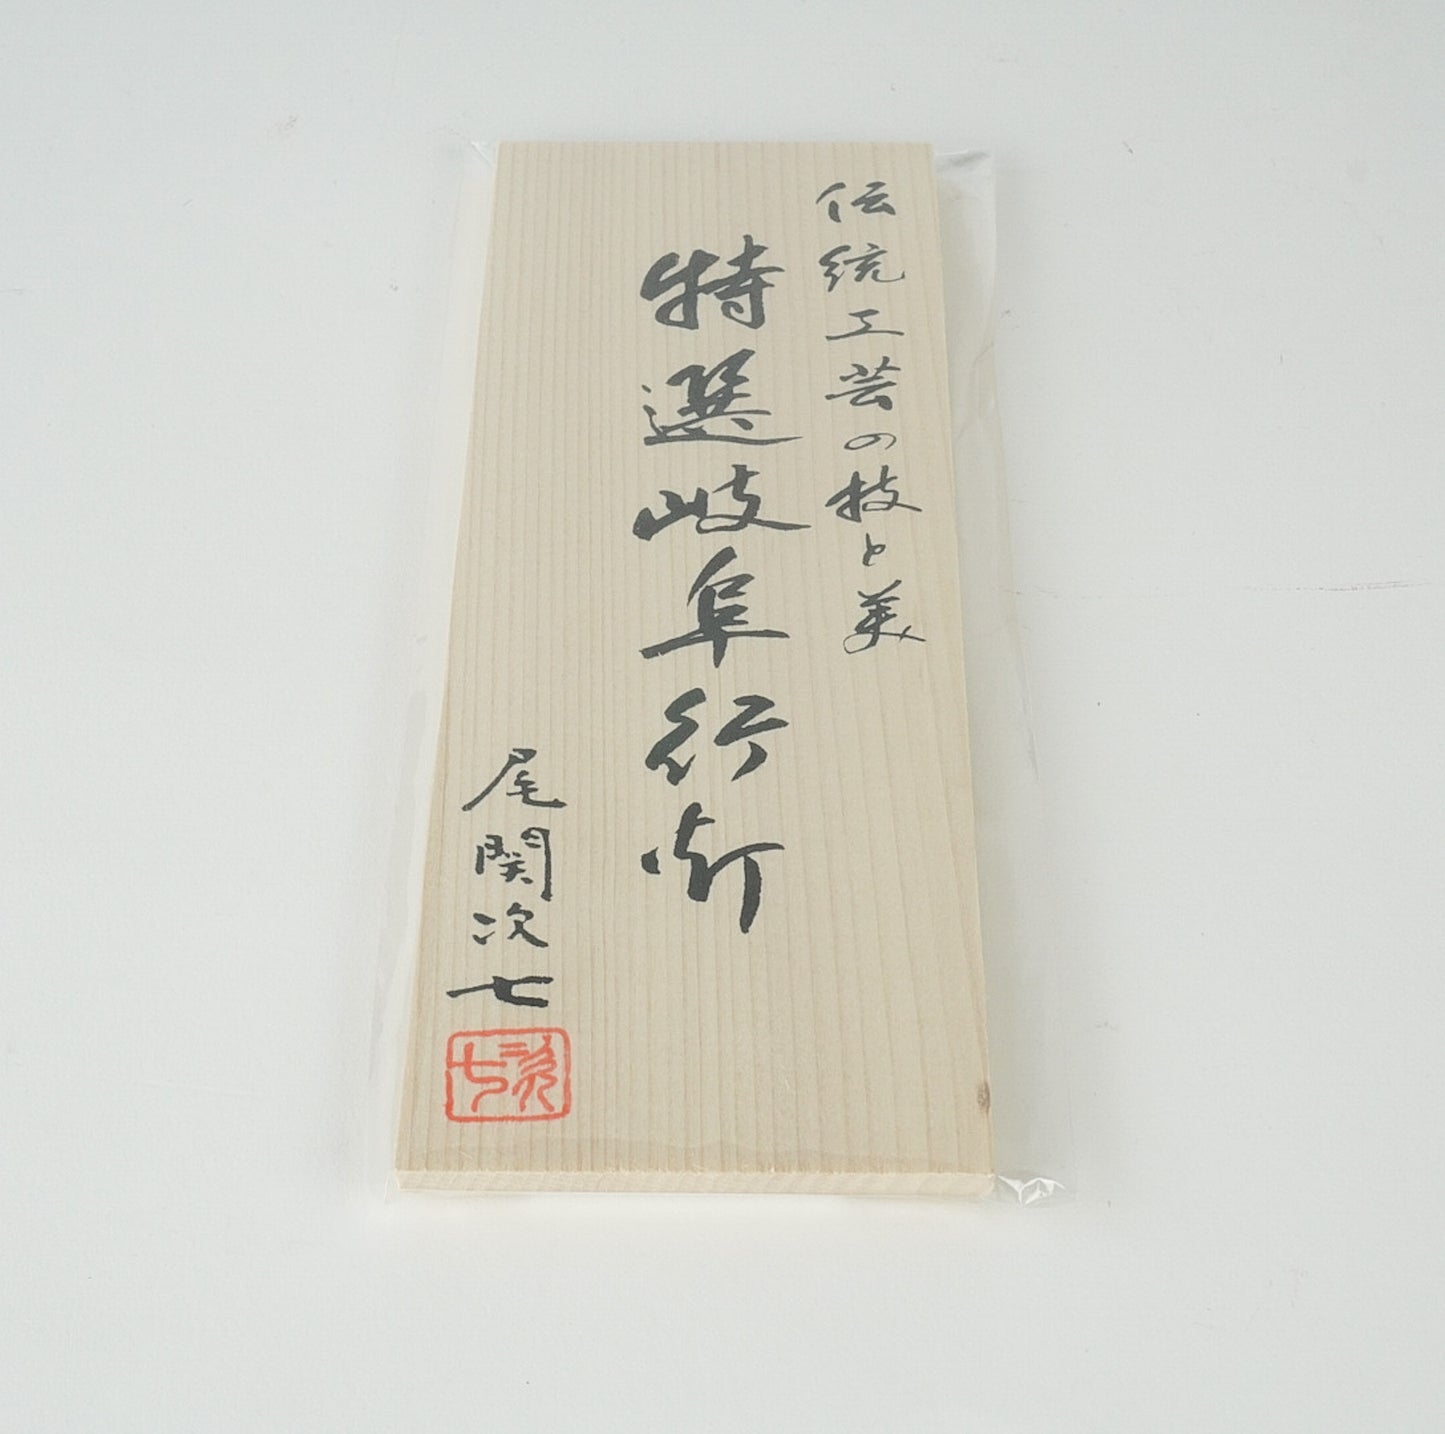 伝統工芸の技と美
特選岐阜行灯
尾関次七